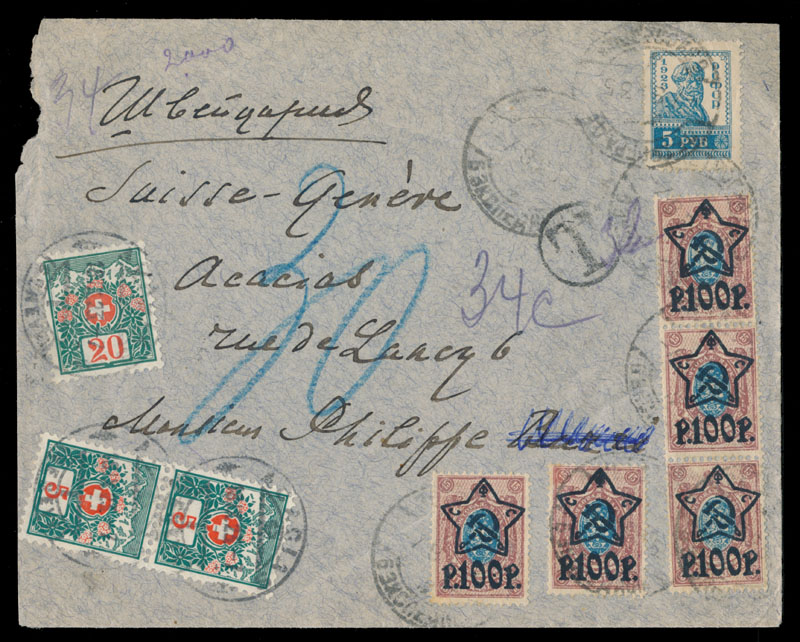 2000
34c
Швейцария
Suisse-Genève
Acacias
rue de Lancy 6
Monsieur Philippe
30
34c
T
1923
РСФСР
5 РУБ
Р.100Р.
Р.100Р.
Р.100Р.
Р.100Р.
Р.100Р.
20
5
5